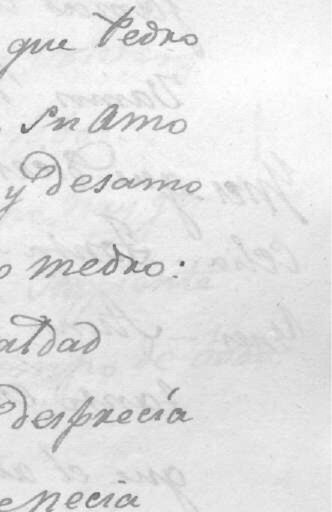 que Pedro
Su Amo
y desamo
medro:
aldad
desprecia
necia